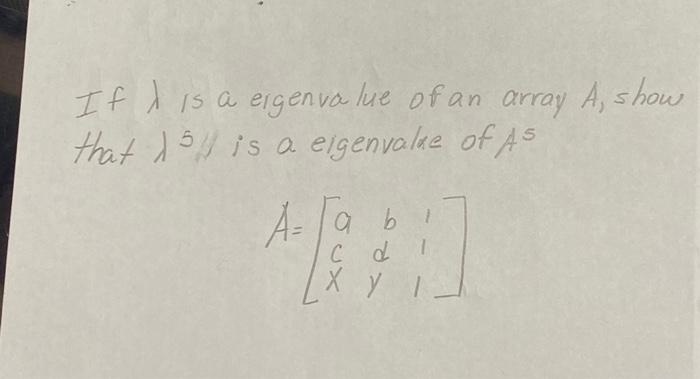 If λ is a eigenvalue of an array A, show
that λ⁵ is a eigenvalue of A⁵
A = [a b 1
c d 1
x y 1]